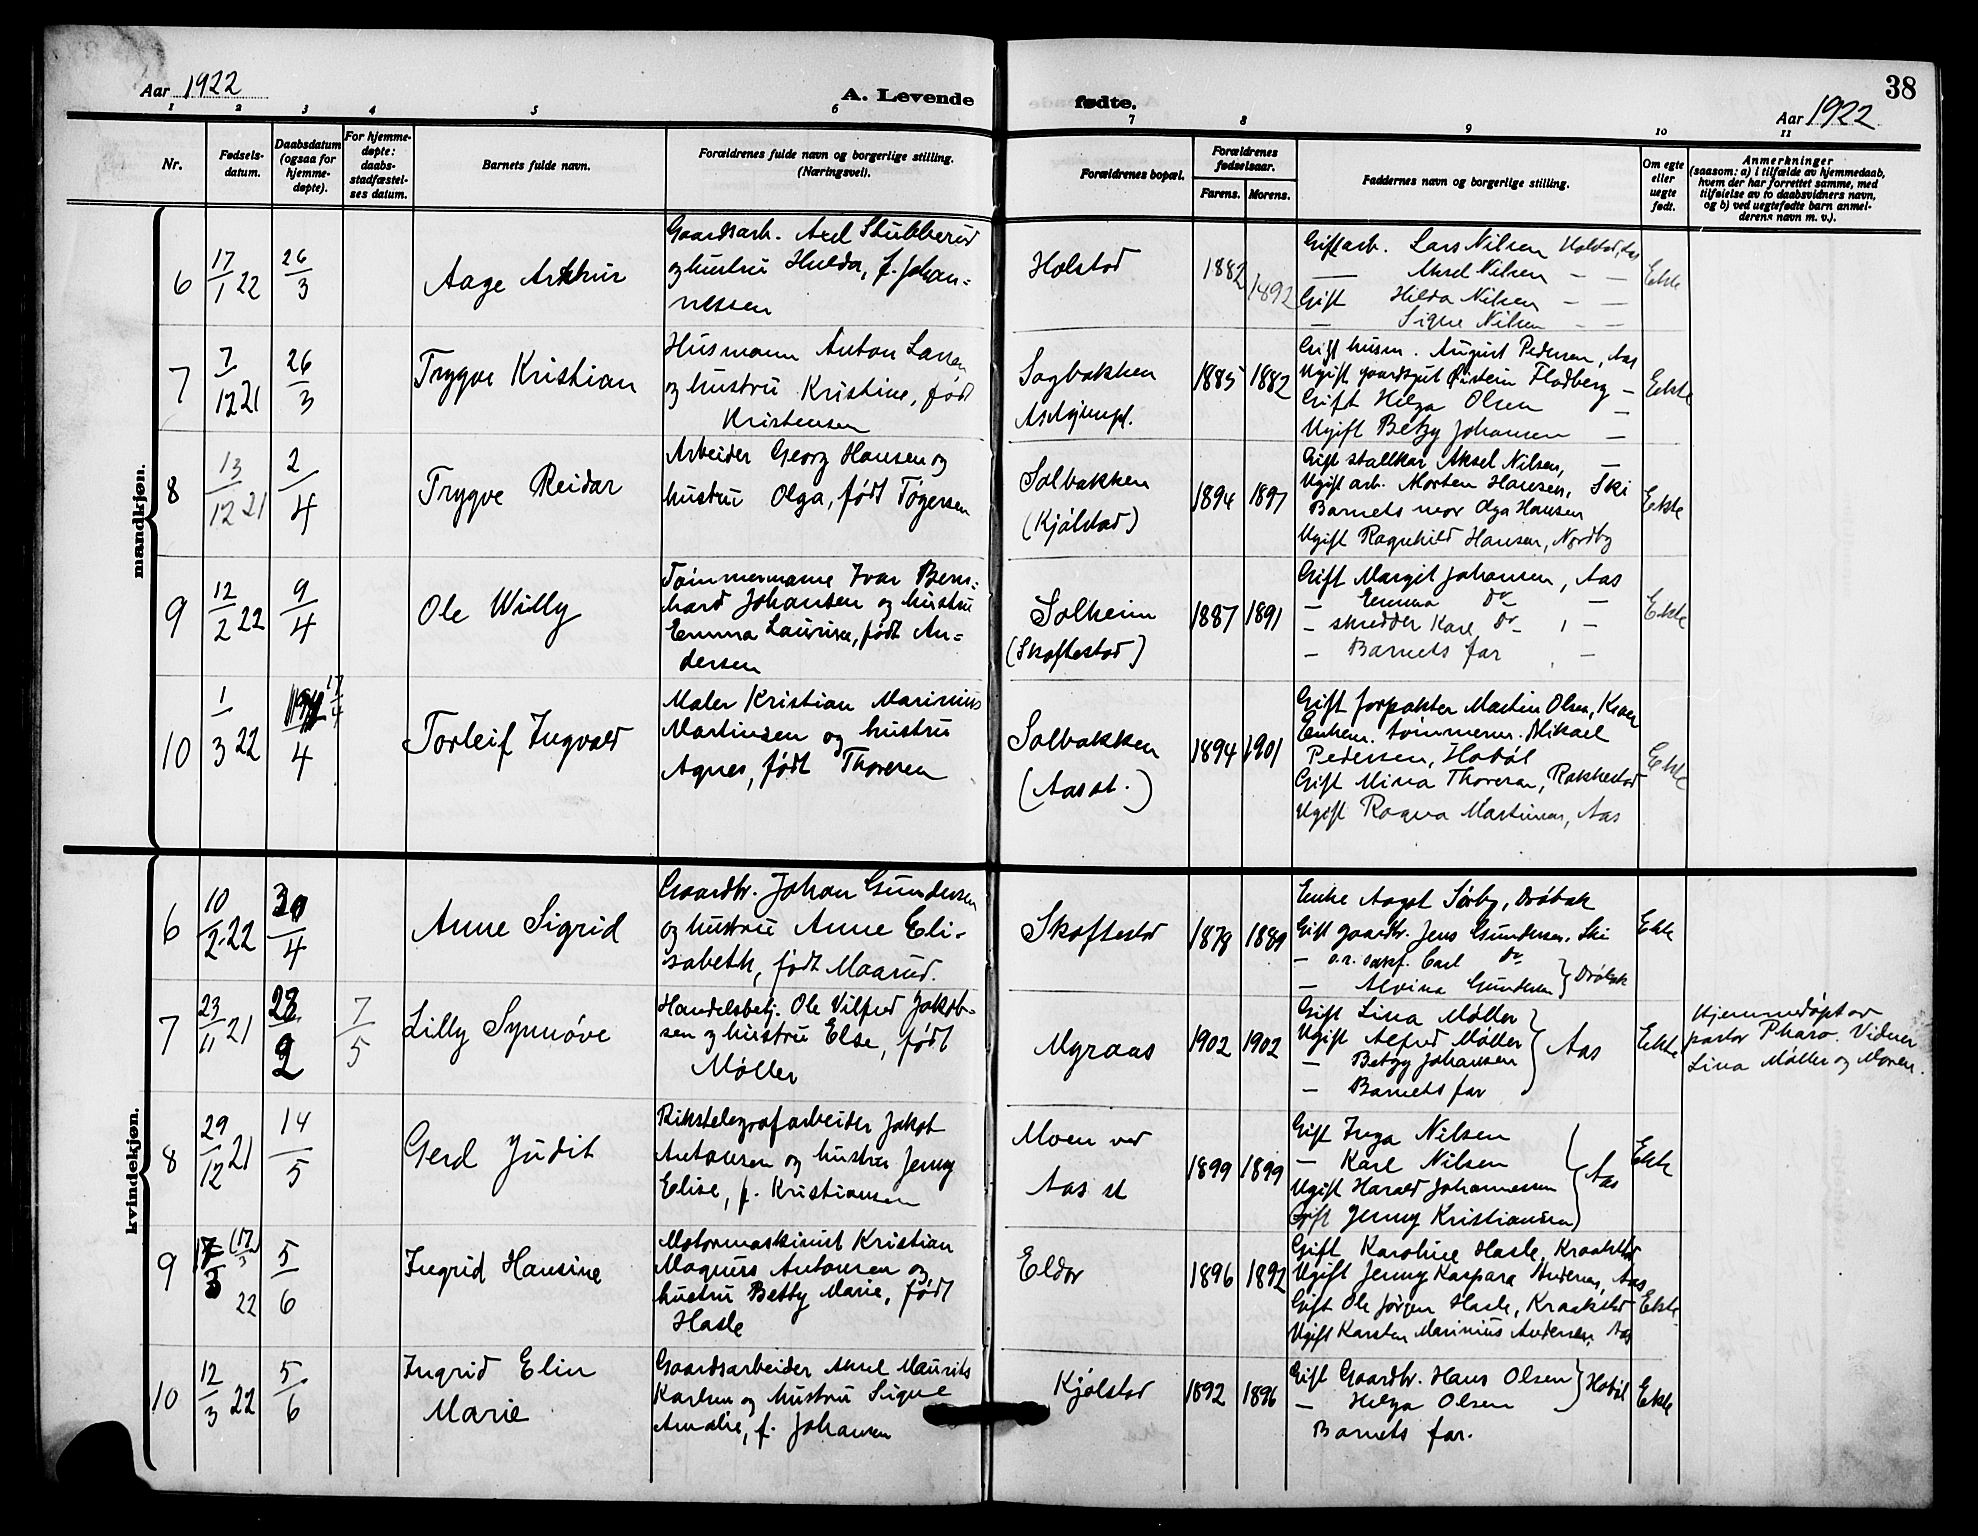 Aar 1922
A. Levende
fødte.
38
Aar 1922
1 2 3 4 5 6 7 8 9 10 11
Nr.
Fødsels-
datum.
Daabsdatum
(ogsaa for
hjemme-
døpte).
For hjemme-
døpte:
daabs-
stadfæstel-
ses datum.
Barnets fulde navn.
Forældrenes fulde navn og borgerlige stilling.
(Næringsvei).
Forældrenes bopæl.
Forældrenes
fødselsaar.
Farens. Morens.
Faddernes navn og borgerlige stilling.
Om egte
eller
uegte
født.
Anmerkninger
(saasom: a) i tilfælde av hjemmedaab,
hvem der har forrettet samme, med
tilføielse av to daabsvidners navn,
og b) ved uegtefødte barn anmel-
derens navn m. v.).
mandkjøn.
6
17/1 22
26/3
Aage Arthur
Gaardsarb. Axel Stubberud
og hustru Hulda, f. Johan-
nessen
Holstad
1882
1892
Gift arb. Lars Nilsen Holstad, Aas
— Aksel Nilsen — —
Gift Hilda Nilsen — —
— Signe Nilsen — —
Ekte
7
7/12 21
26/3
Trygve Kristian
Husmann Anton Larsen
og hustru Kristine, født
Kristensen
Sagbakken
1885
1882
Gift husm. August Pedersen, Aas
Ugift gaardsgut Øistein Flodberg —
Gift Helga Olsen —
Ugift Betzy Johansen —
Ekte
8
13/12 21
2/4
Trygve Reidar
Arbeider Georg Hansen og
hustru Olga, født Tøgersen
Solbakken
(Kjølstad)
1894
1897
Gift stallkar Aksel Nilsen, —
Ugift arb. Morten Hansen, Ski
Barnets mor Olga Hansen
Ugift Ragnhild Hansen, Nordby
Ekte
9
12/2 22
9/4
Ole Willy
Tømmermann Ivar Bern-
hard Johansen og hustru
Emma Laurine, født An-
dersen
Solheim
(Skoftestad)
1887
1891
Gift Margit Johansen, Aas
— Emma do —
— skredder Karl do —
— Barnets far —
Ekte
10
1/3 22
17/4
4
Torleif Ingvald
Maler Kristian Marinius
Martinsen og hustru
Agnes, født Thoresen
Solbakken
(Aas st.)
1894
1901
Gift forpakter Martin Olsen, Kroer
Enkem. tømmerm. Mikael
Pedersen, Hobøl
Gift Mina Thoresen, Rakkestad
Ugift Ragna Martinsen, Aas
Ekte
kvindekjøn.
6
10/2 22
30/4
Anne Sigrid
Gaardbr. Johan Gundersen
og hustru Anne Eli-
sabeth, født Maarud.
Skoftestad
1878
1889
Enke Aagot Sørby, Drøbak
Gift gaardbr. Jens Gundersen, Ski
— o.r. sakf. Carl do
— Alvina Gundersen } Drøbak
Ekte
7
23/11 21
28/2
7/5
Lilly Synnøve
Handelsbetj. Ole Vilfred Jakob-
sen og hustru Else, født
Møller
Myraas
1902
1902
Gift Lina Møller
Ugift Alfred Møller
— Betzy Johansen } Aas
— Barnets far
Ekte
Hjemmedøpt av
pastor Pharo. Vidner
Lina Møller og Moren.
8
29/12 21
14/5
Gerd Judit
Rikstelegrafarbeider Jakob
Antonsen og hustru Jenny
Elise, f. Kristiansen
Moen ved
Aas st
1899
1899
Gift Inga Nilsen
— Karl Nilsen
Ugift Harald Johannessen } Aas
Gift Jenny Kristiansen
Ekte
9
17/3 (17/3) 22
5/6
Ingrid Hansine
Motormaskinist Kristian
Magnus Antonsen og
hustru Betty Marie, født
Hasle
Eldor
1896
1892
Gift Karoline Hasle, Kraakstad
Ugift Jenny Kaspara Andersen, Aas
Gift Ole Jørgen Hasle, Kraakstad
Ugift Karsten Marinius Andersen, Aas
Ekte
10
12/3 22
5/6
Ingrid Elin
Marie
Gaardsarbeider Aksel Maurits
Karlsen og hustru Signe
Amalie, f. Johansen
Kjølstad
1892
1896
Gift Gaardbr. Hans Olsen
— Helga Olsen } Hobøl
Barnets far.
Ekte